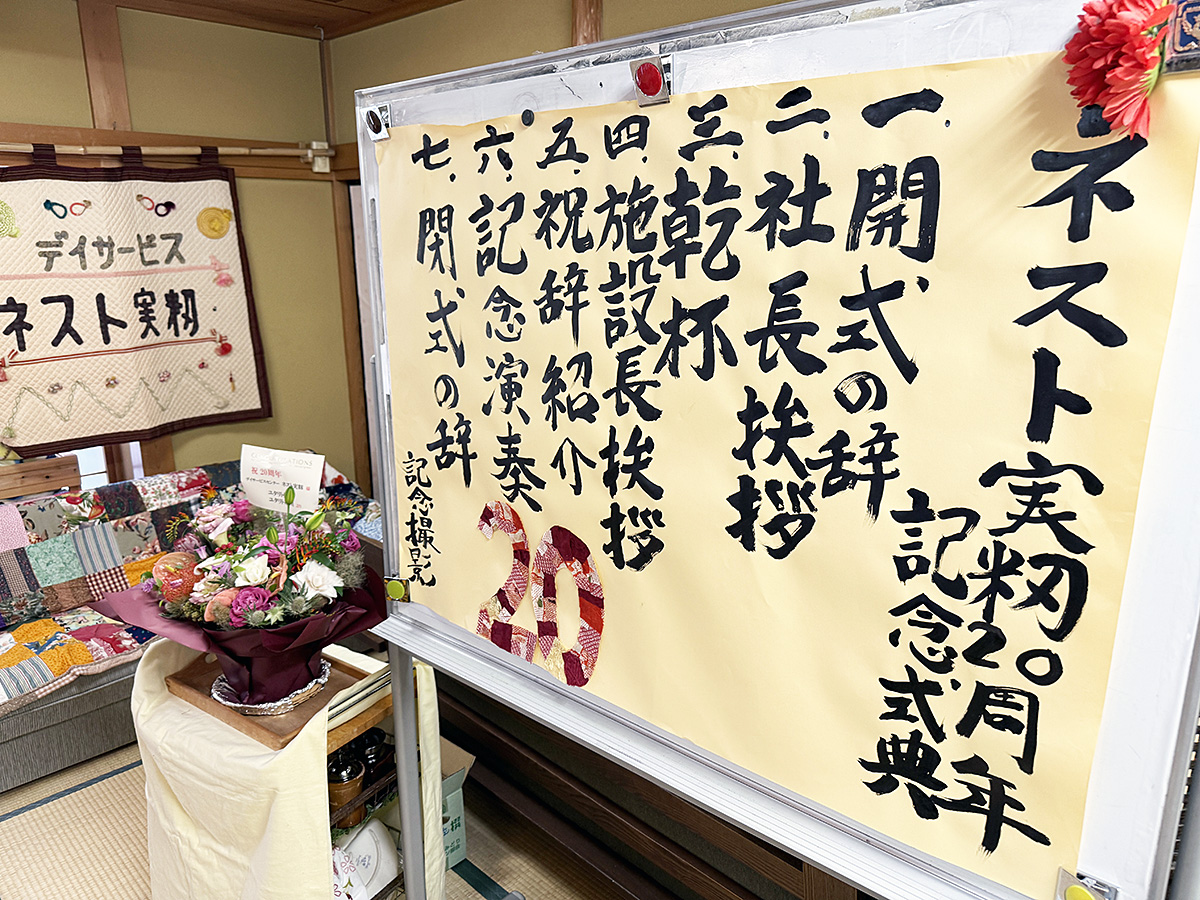 ネスト実籾20周年
記念式典
一.開式の辞
二.社長挨拶
三.乾杯
四.施設長挨拶
五.祝辞紹介
六.記念演奏
七.閉式の辞
記念撮影
20
デイサービス
ネスト実籾
祝20周年